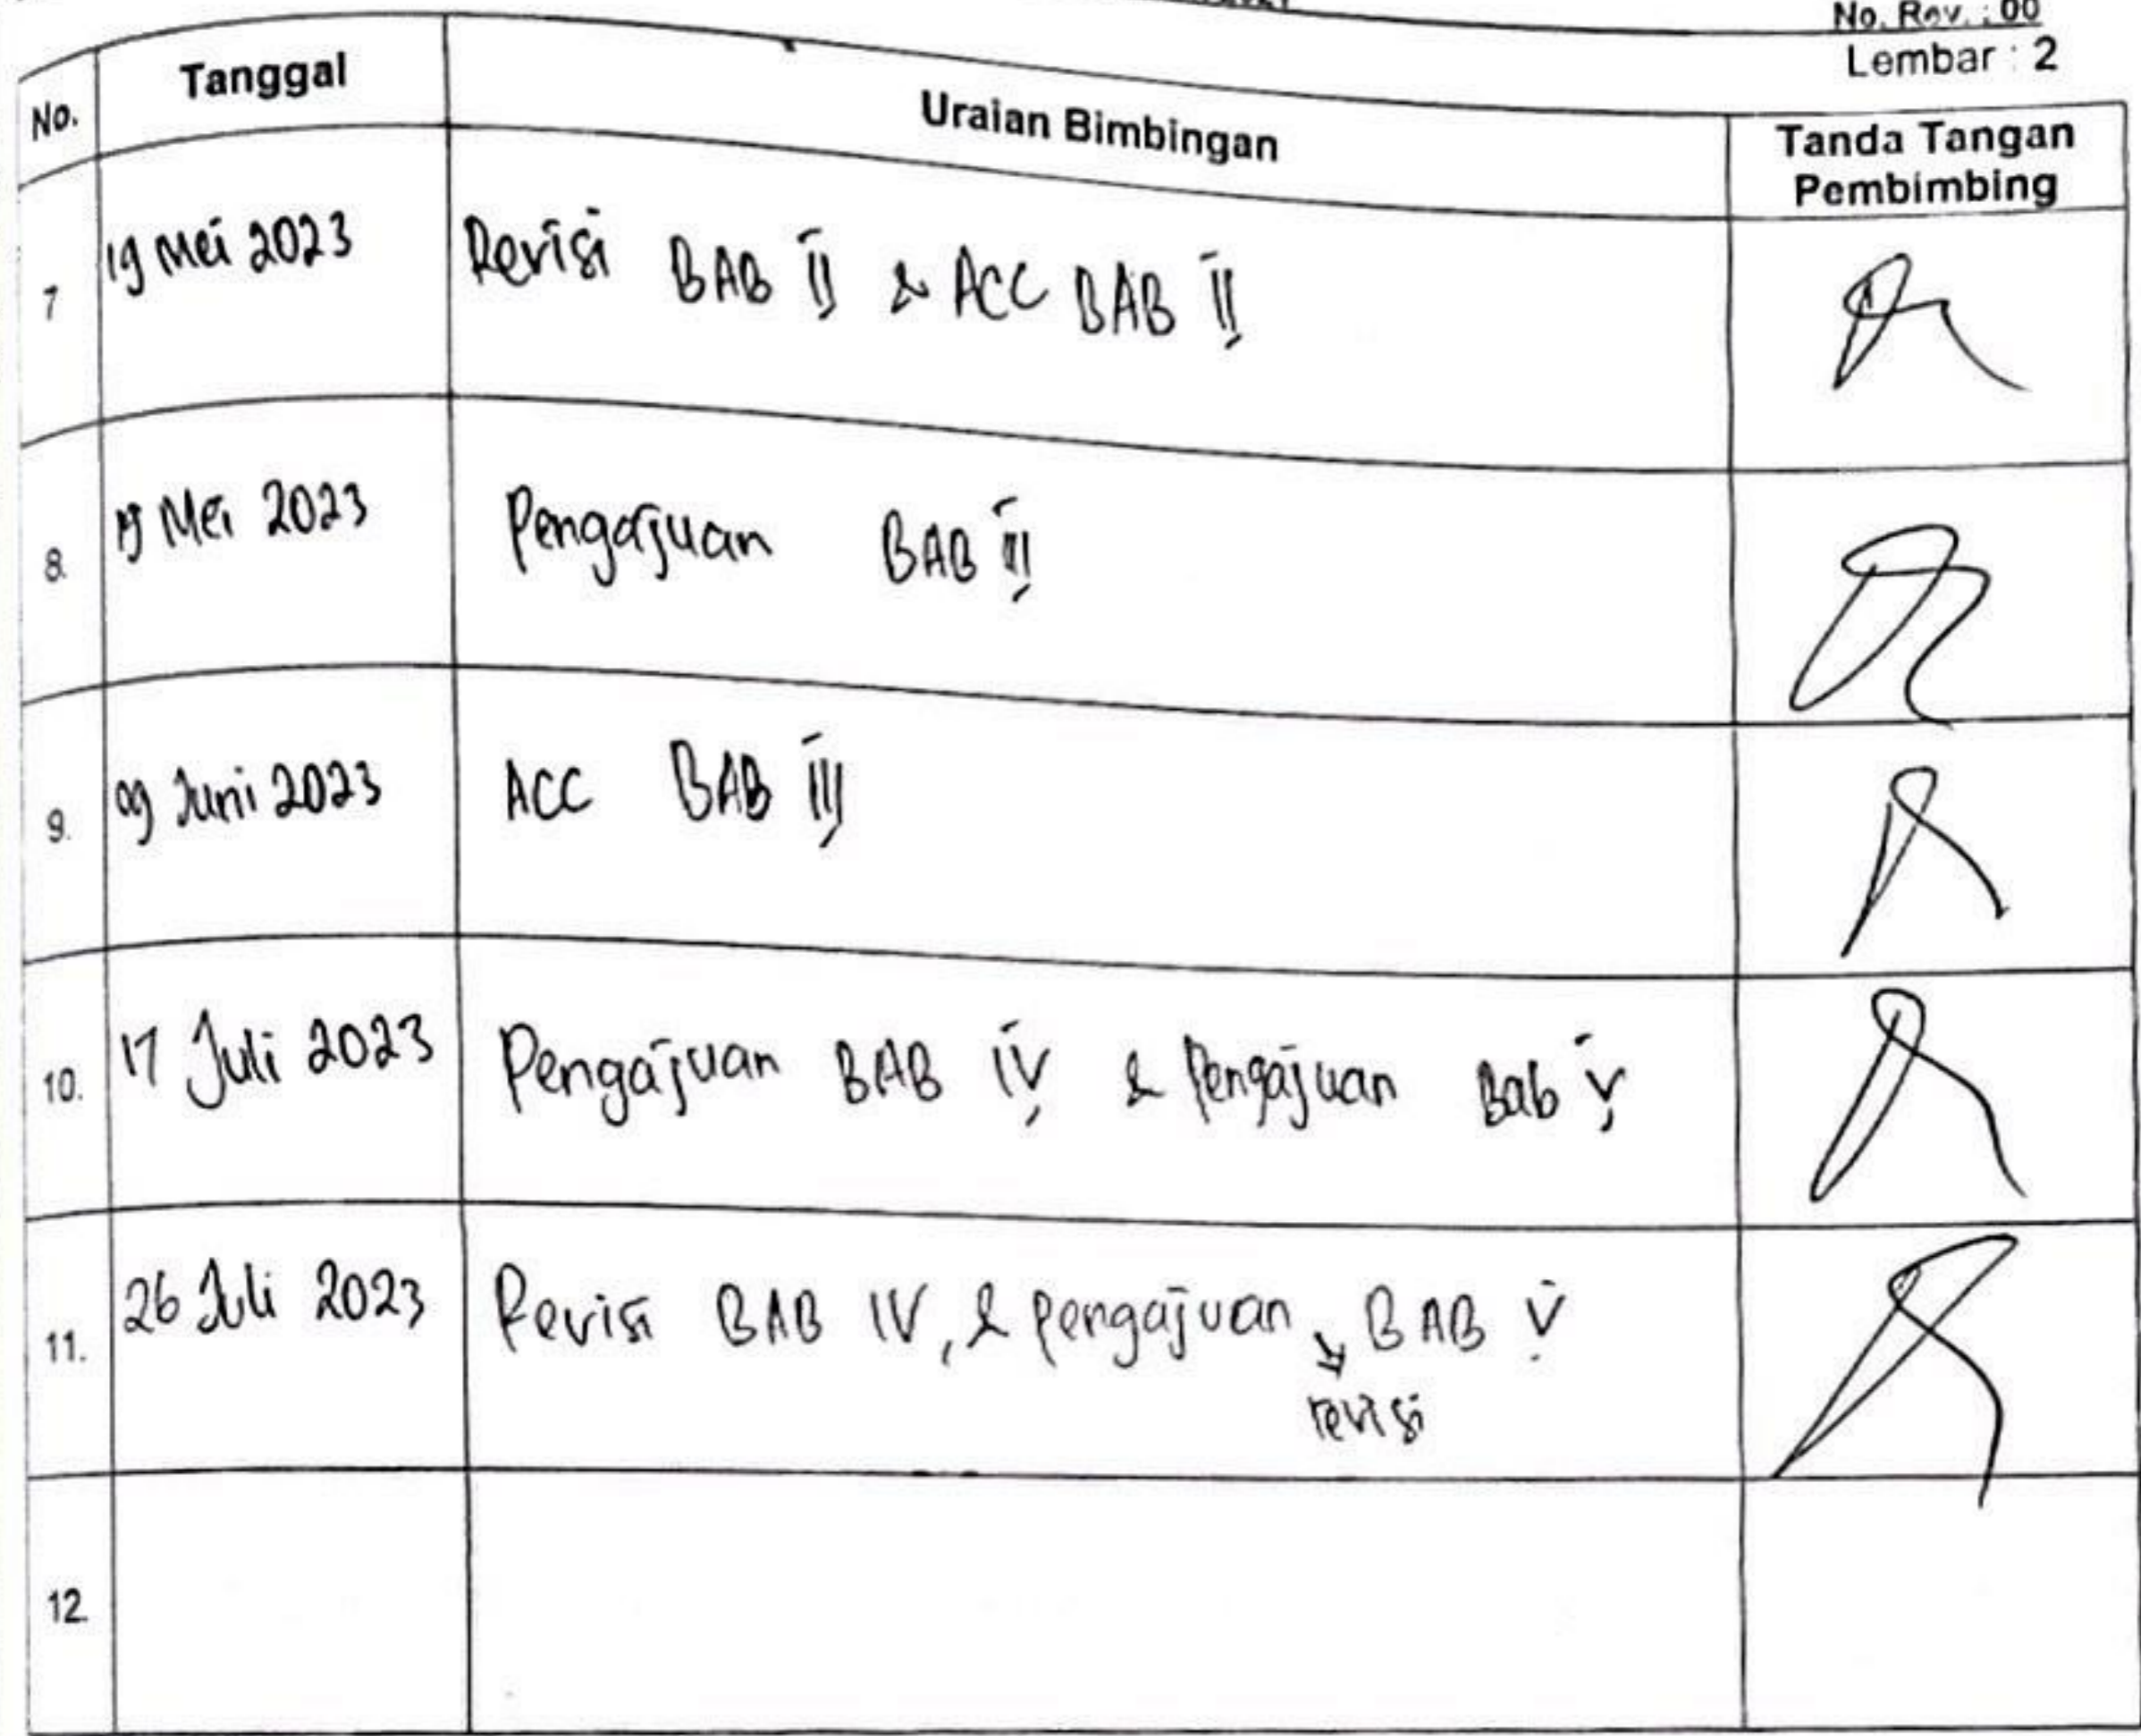 No. Rev. : 00
Lembar : 2
No. Tanggal Uraian Bimbingan Tanda Tangan Pembimbing
7 19 Mei 2023 Revisi BAB II & ACC BAB II
8. 19 Mei 2023 Pengajuan BAB III
9. 09 Juni 2023 ACC BAB III
10. 17 Juli 2023 Pengajuan BAB IV & Pengajuan Bab V
11. 26 Juli 2023 Revisi BAB IV, & pengajuan BAB V
revisi
12.